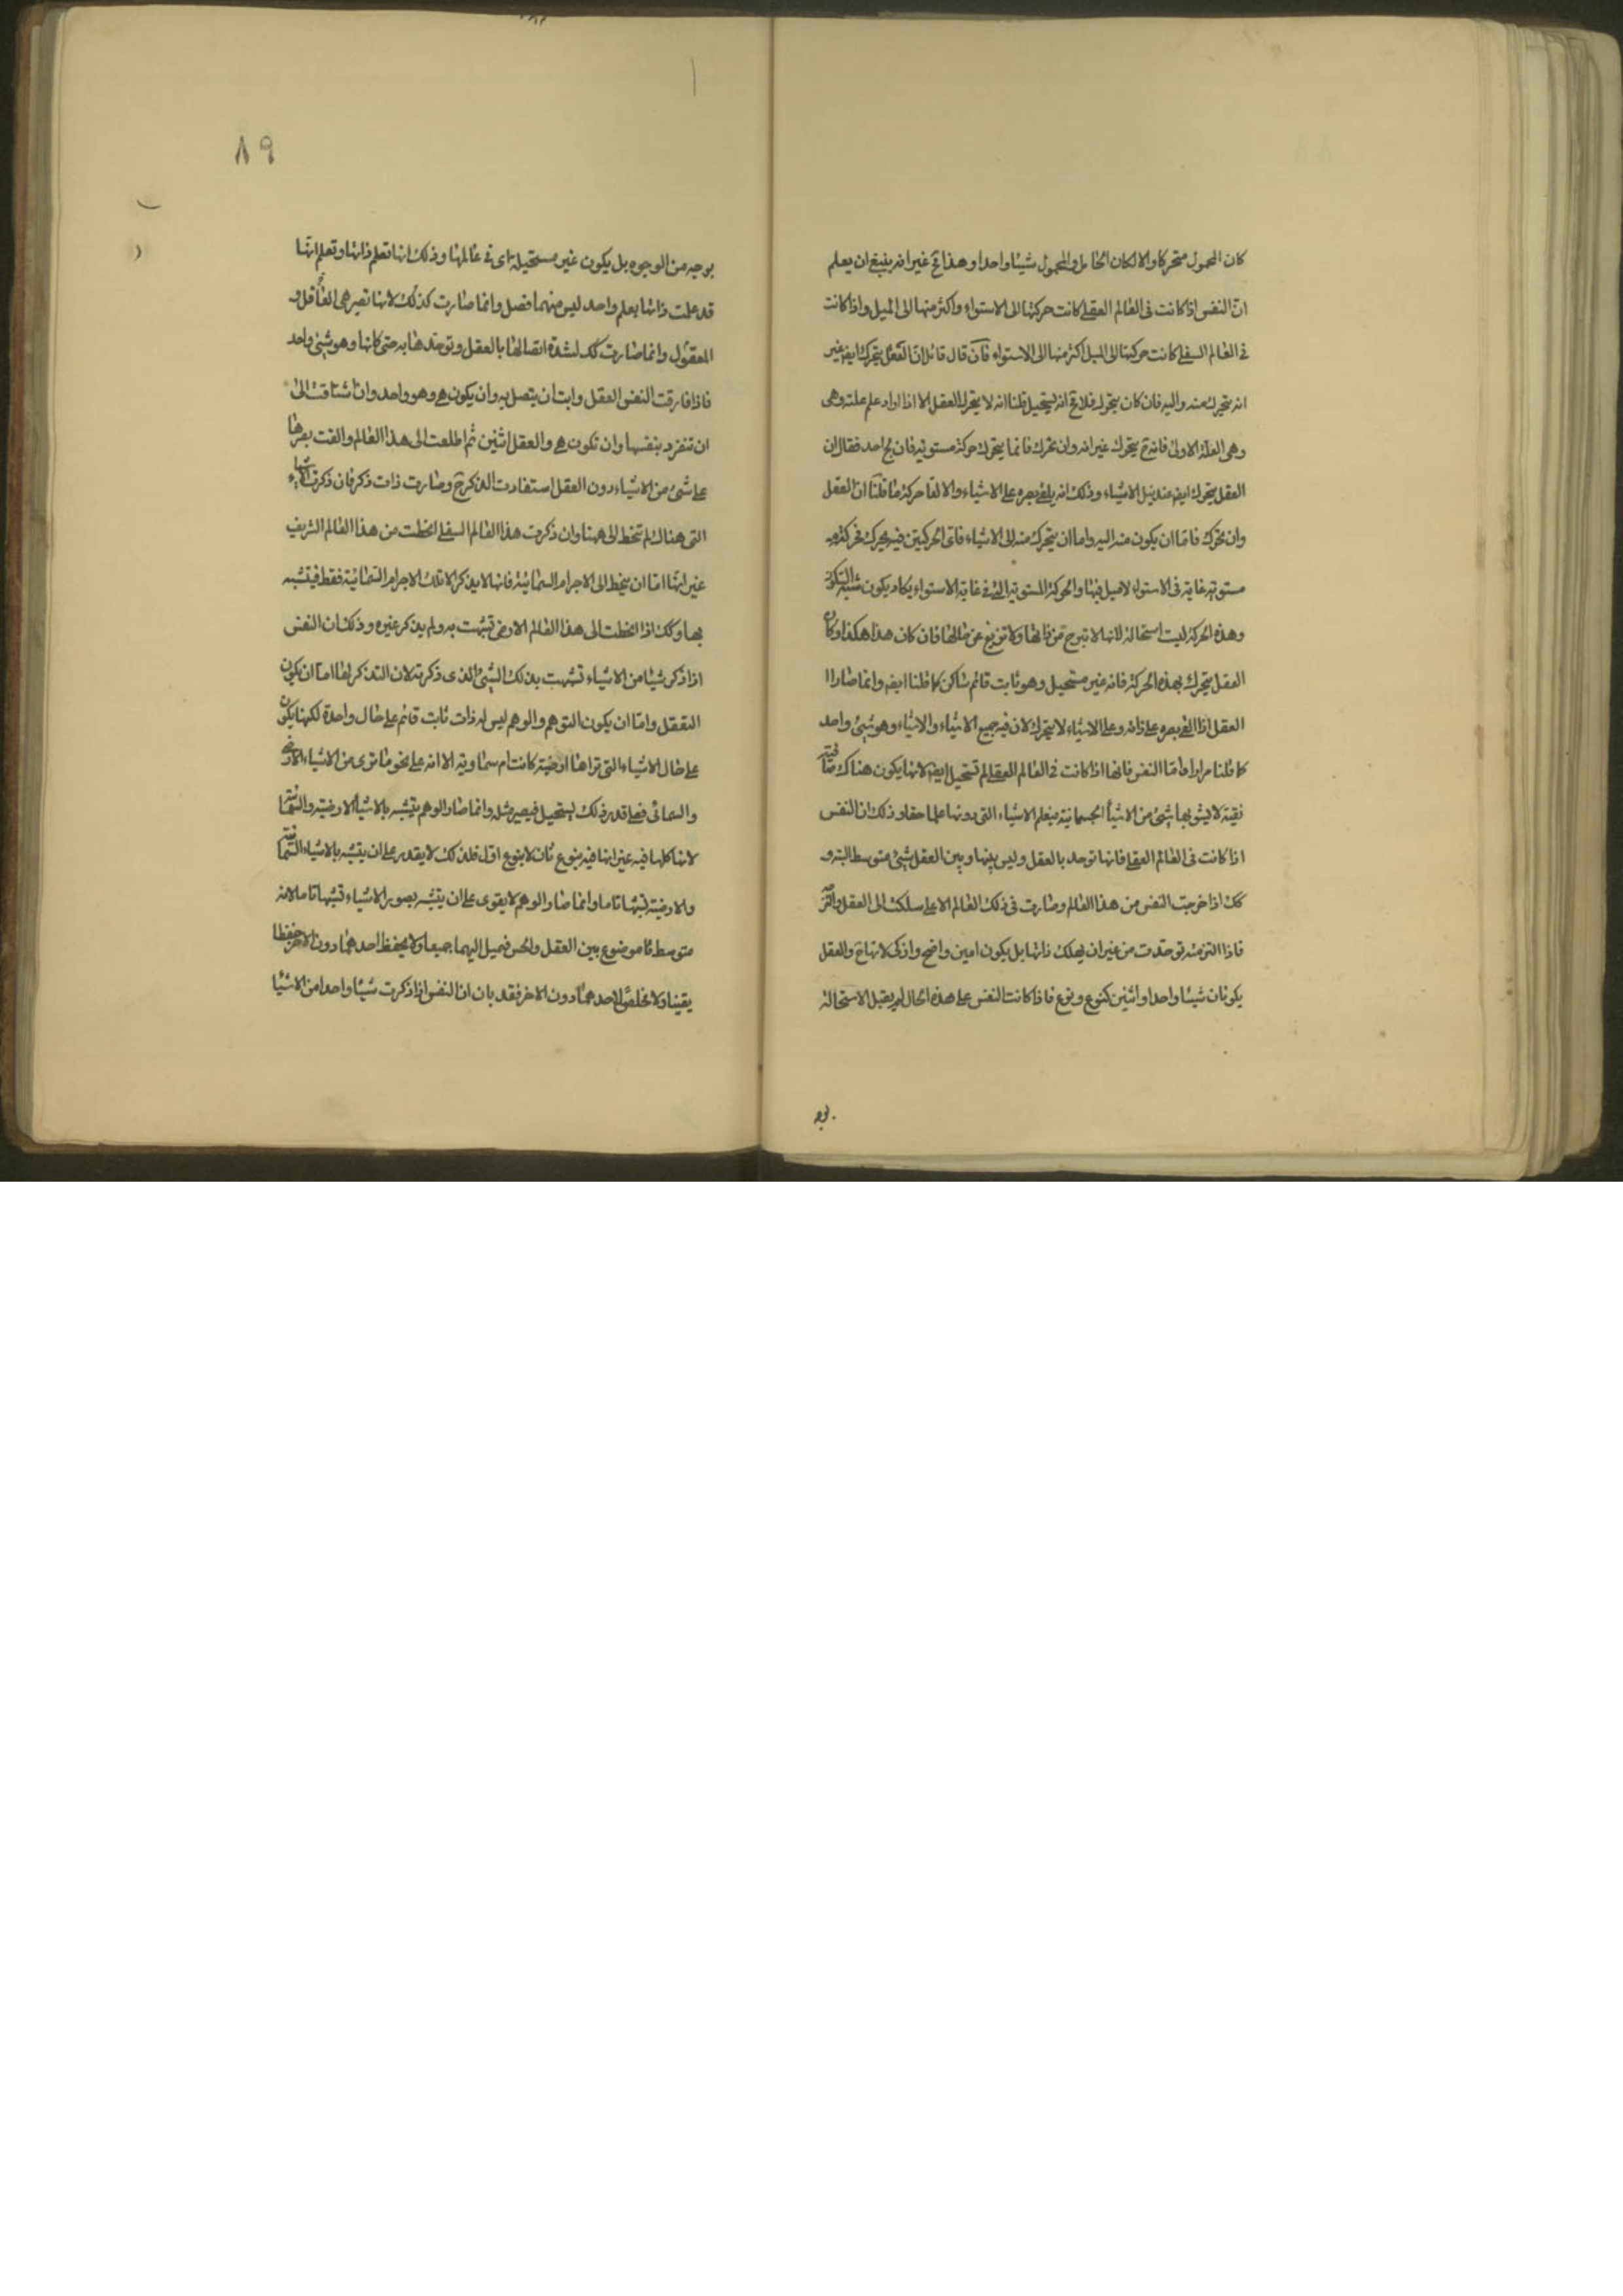 كان المحمول متحركا والا لكان الحامل والمحمول شيئا واحدا وهذا مح غير انه ينبغى ان يعلم
ان النفس اذا كانت فى العالم العقلى كانت حركتها الى الاستواء واكثر منها الى الميل واذا كانت
فى العالم السفلى كانت حركتها الى الميل اكثر منها الى الاستواء فان قال قائل ان العقل يتحرك ايضا غير
انه يتحرك منه واليه فان كان يتحرك فلا مح انه يستحيل قلنا انه لا يتحرك العقل الا اذا اراد علم علته وهى
وهى العلة الاولى فانه ح يتحرك غير انه وان تحرك فانما يتحرك حركة مستوية فان لج احد فقال ان
العقل يتحرك ايضا عند نيل الاشياء وذلك انه يلقى بصره على الاشياء والالقا حركة ما قلنا ان العقل
وان تحرك فاما ان يكون منه اليه واما ان يتحرك منه الى الاشياء فاى الحركتين فيه يحرك فحركته
مستوية غاية فى الاستواء لا ميل فيها والحركة المستوية التى فى غاية الاستواء يكاد يكون شبه السكون
وهذه الحركة ليست استحالة لانها لا تبرح من ذاتها ولا تزيغ عن حالها فان كان هذا هكذا وكان
العقل يتحرك بهذه الحركة فانه غير مستحيل وهو ثابت قائم ساكن كما قلنا ايضا وانما صار ا
العقل اذا القى بصره على ذاته وعلى الاشياء لا يتحرك لان فيه جميع الاشياء والاشياء وهو شئ واحد
كما قلنا مرارا واما النفس فانها اذا كانت فى العالم العقلى لم تستحيل ايضا لانها يكون هناك صافية
نقية لا يشوبها شئ من الاشيأ الجسمانية فيعلم الاشياء التى دونها علما حقا وذلك ان النفس
اذا كانت فى العالم العقلى فانها توحد بالعقل وليس بينها وبين العقل شئ متوسط البتة و
كك اذا خرجت النفس من هذا العالم وصارت فى ذلك العالم الاعلى سلكت الى العقل والتزمته
فاذا التزمته توحدت من غير ان يهلك ذاتها بل يكون ابين واوضح وازكى لانها ح والعقل
يكونان شيئا واحدا واثنين كنوع ونوع فاذا كانت النفس على هذه الحال لم يقبل الاستحالة
بوجه
٨٩
بوجه من الوجوه بل يكون غير مستحيلة اى فى عالمها وذلك انها تعلم ذاتها وتعلم انها
قد علمت ذاتها بعلم واحد ليس منهما فصل وانما صارت كذلك لانها تصير هى العاقل و
المعقول وانما صارت كك لشدة اتصالها بالعقل وتوحدها به حتى كانها وهو شئ واحد
فاذا فارقت النفس العقل وابت ان يتصل به وان يكون هى وهو واحد وان اشتاقت الى
ان تنفرد بنفسها وان تكون هى والعقل اثنين ثم اطلعت الى هذا العالم والقت بصرها
على شئ من الاشياء دون العقل استفادت الذكر ح وصارت ذات ذكر فان ذكرت الاشياء
التى هناك لم تنحط الى ههنا وان ذكرت هذا العالم السفلى انحطت من هذا العالم الشريف
غير انها اما ان ينحط الى الاجرام السمائية فانها لا يذكر الا تلك الاجرام السمائية فقط فيتشبه
بها وكك اذا انحطت الى هذا العالم الارضى تشبهت به ولم يذكر غيره وذلك ان النفس
اذا ذكر شيئا من الاشياء تشبهت بذلك الشئ الذى ذكرته لان التذكر لها اما ان يكون
التعقل واما ان يكون التوهم والوهم ليس له ذات ثابت قائم على حال واحدة لكنها يكون
على حال الاشياء التى تراها ارضية كانت ام سماوية الا انه على نحو ما ترى من الاشياء الارضى
والسمائى فعلى قدر ذلك يستحيل فيصير مثله وانما صار الوهم يتشبه بالاشيأ الارضية والسمائية
لانها كلها فيه غير انها فيه بنوع ثان لا بنوع اول فلذلك لا يقدر على ان يتشبه بالاشياء السمائية
والارضية تشبها تاما وانما صار الوهم لا يقوى على ان يتشبه بصور الاشياء تشبها تاما لانه
متوسط ما موضوع بين العقل والحس فيميل اليهما جميعا ولا يحفظ احدهما دون الاخر حفظا
يقينا ولا يخلص لاحدهما دون الاخر فقد بان ان النفس اذا ذكرت شيئا واحدا من الاشيا